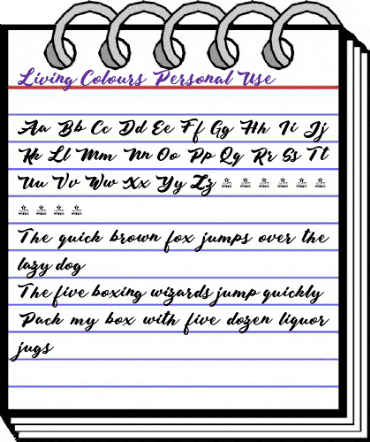 Living Colours Personal Use
Aa Bb Cc Dd Ee Ff Gg Hh Ii Jj
Kk Ll Mm Nn Oo Pp Qq Rr Ss Tt
Uu Vv Ww Xx Yy Zz
The quick brown fox jumps over the
lazy dog
The five boxing wizards jump quickly
Pack my box with five dozen liquor
jugs